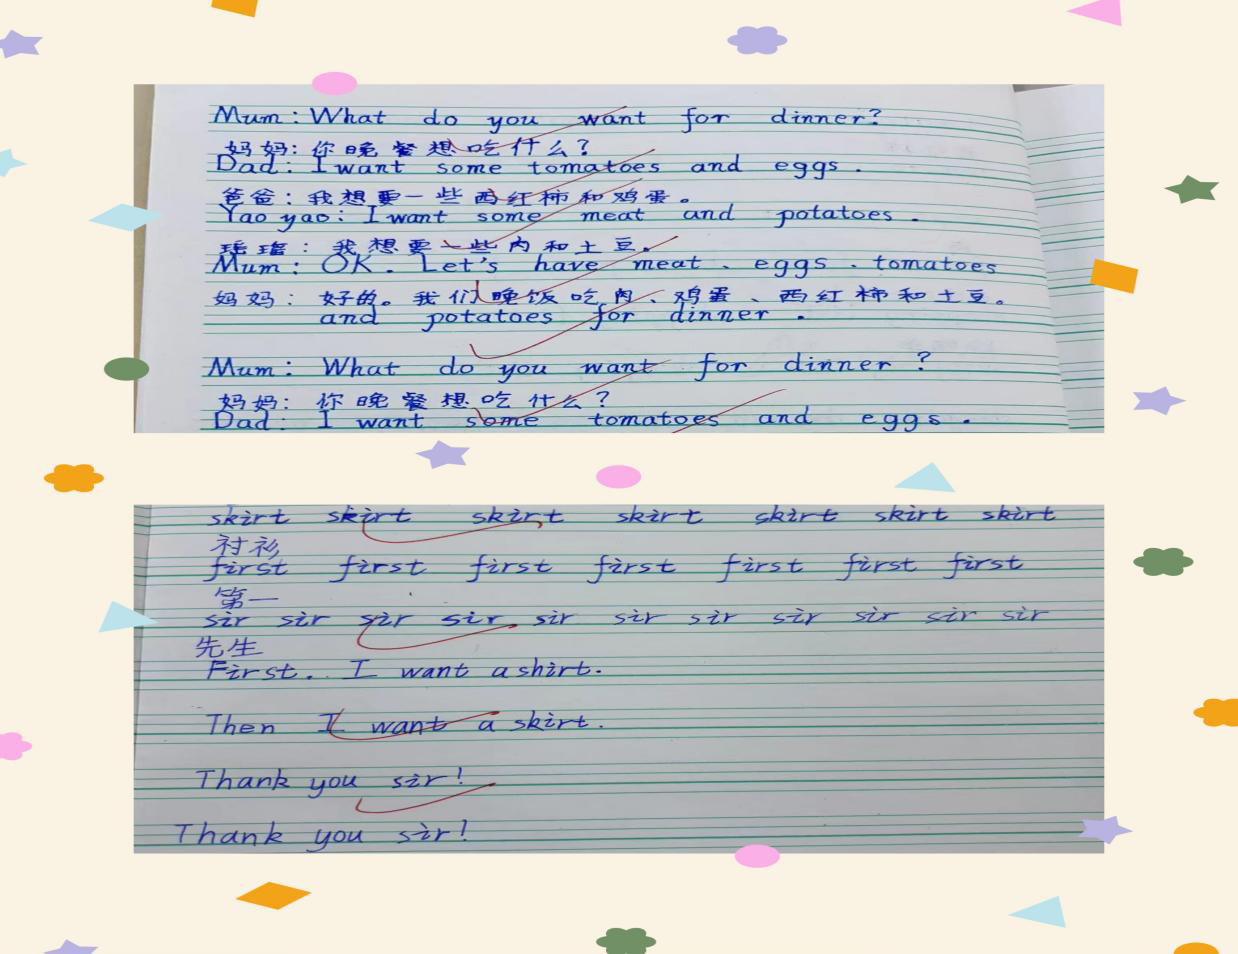 Mum: What do you want for dinner?
妈妈: 你晚餐想吃什么?
Dad: I want some tomatoes and eggs.
爸爸: 我想要一些西红柿和鸡蛋。
Yao yao: I want some meat and potatoes.
瑶瑶: 我想要一些肉和土豆。
Mum: OK. Let's have meat、eggs、tomatoes
妈妈: 好的。我们晚饭吃肉、鸡蛋、西红柿和土豆。
and potatoes for dinner.
Mum: What do you want for dinner?
妈妈: 你晚餐想吃什么?
Dad: I want some tomatoes and eggs.
skirt skirt skirt skirt skirt skirt skirt
衬衫
first first first first first first first
第一
sir sir sir sir sir sir sir sir sir sir sir
先生
First. I want a shirt.
Then I want a skirt.
Thank you sir!
Thank you sir!